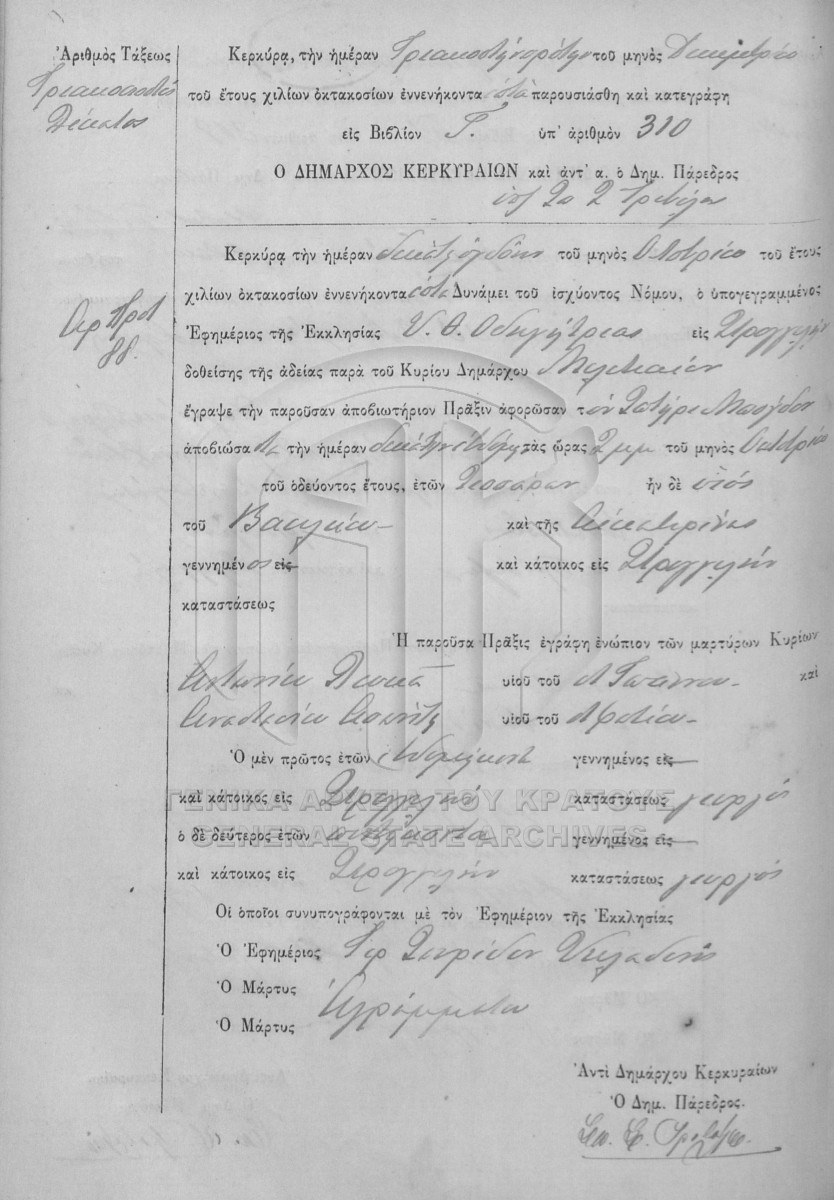 Ἀριθμὸς Τάξεως
Τριακοσιοστός
Δέκατος
Κερκύρᾳ, τὴν ἡμέραν Τριακοστὴν πρώτην τοῦ μηνὸς Δεκεμβρίου
τοῦ ἔτους χιλίων ὀκτακοσίων ἐννενήκοντα ἑπτὰ παρουσιάσθη καὶ κατεγράφη
εἰς Βιβλίον Γ. ὑπ' ἀριθμὸν 310
Ο ΔΗΜΑΡΧΟΣ ΚΕΡΚΥΡΑΙΩΝ καὶ ἀντ' α. ὁ Δημ. Πάρεδρος
Κερκύρᾳ τὴν ἡμέραν δεκάτην ὀγδόην τοῦ μηνὸς Οκτωβρίου τοῦ ἔτους
χιλίων ὀκτακοσίων ἐννενήκοντα ἑπτὰ Δυνάμει τοῦ ἰσχύοντος Νόμου, ὁ ὑπογεγραμμένος
Αρ Πρωτ
88.
Ἐφημέριος τῆς Ἐκκλησίας Υ. Θ. Οδηγήτριας εἰς Στρογγυλήν
δοθείσης τῆς ἀδείας παρὰ τοῦ Κυρίου Δημάρχου Μελιτειαίων
ἔγραψε τὴν παροῦσαν ἀποβιωτήριον Πρᾶξιν ἀφορῶσαν τὸν Σωτήρι
ἀποβιώσαντα τὴν ἡμέραν δεκάτην ἑβδόμην τὰς ὥρας 2 μμ τοῦ μηνὸς Οκτωβρίου
τοῦ ὁδεύοντος ἔτους, ἐτῶν Τεσσάρων ἦν δὲ υἱός
τοῦ Βασιλείου καὶ τῆς Αἰκατερίνης
γεννημένος εἰς καὶ κάτοικος εἰς Στρογγυλήν
καταστάσεως
Ἡ παροῦσα Πρᾶξις ἐγράφη ἐνώπιον τῶν μαρτύρων Κυρίων
Αντωνίου Λουκᾶ υἱοῦ τοῦ Ἰωάννου καὶ
Αναστασίου υἱοῦ τοῦ
Ὁ μὲν πρῶτος ἐτῶν ἑβδομήκοντα γεννημένος εἰς
καὶ κάτοικος εἰς Στρογγυλήν καταστάσεως γεωργός
ΓΕΝΙΚΑ ΑΡΧΕΙΑ ΤΟΥ ΚΡΑΤΟΥΣ
GENERAL STATE ARCHIVES
ὁ δὲ δεύτερος ἐτῶν γεννημένος εἰς
καὶ κάτοικος εἰς Στρογγυλήν καταστάσεως γεωργός
Οἱ ὁποῖοι συνυπογράφονται μὲ τὸν Ἐφημέριον τῆς Ἐκκλησίας
Ὁ Ἐφημέριος Ἱερ Σπυρίδων
Ὁ Μάρτυς Ἀγράμματοι
Ὁ Μάρτυς
Ἀντὶ Δημάρχου Κερκυραίων
Ὁ Δημ. Πάρεδρος.